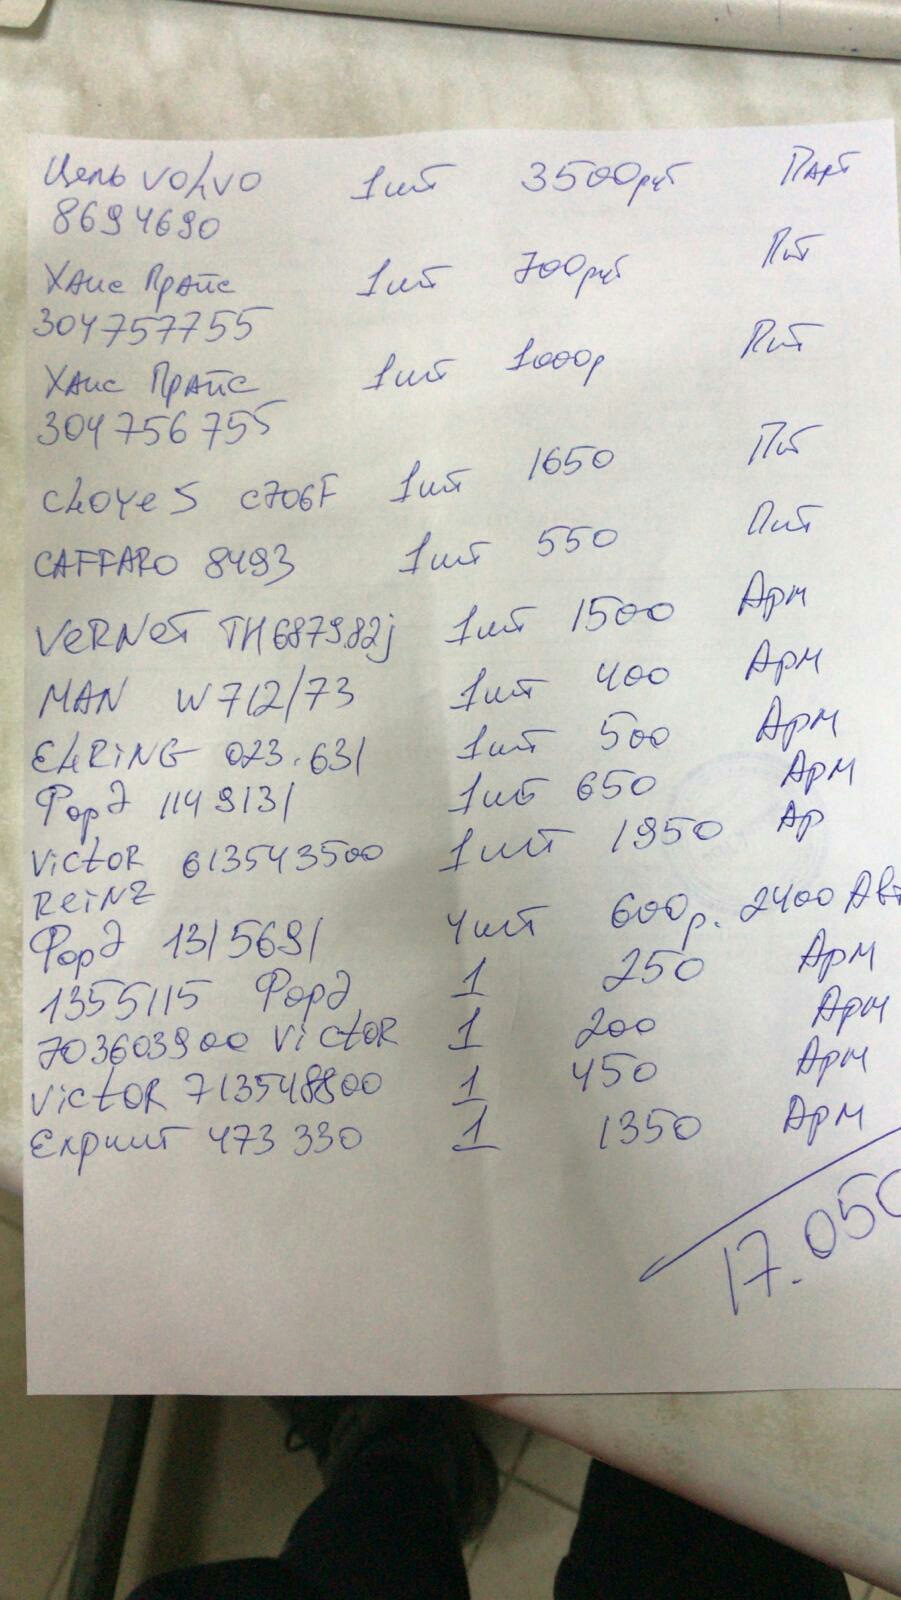 Цепь VOLVO 1шт 3500руб Парт
8694690
Ханс Прайс 1шт 700руб Пит
304757755
Ханс Прайс 1шт 1000р Пит
304756755
CLOYeS C706F 1шт 1650 Пит
CAFFARO 8493 1шт 550 Пит
VeRNeT TH6879.82j 1шт 1500 Арм
MAN W712/73 1шт 400 Арм
ELRiNG 023.631 1шт 500 Арм
Форд 1149131 1шт 650 Арм
VictoR 613543500 1шт 1950 Ар
ReiNZ
Форд 1315691 4шт 600р. 2400 Авт
1355115 Форд 1 250 Арм
703603900 VictoR 1 200 Арм
VictoR 713548800 1 450 Арм
Елринг 473 330 1 1350 Арм
17.050